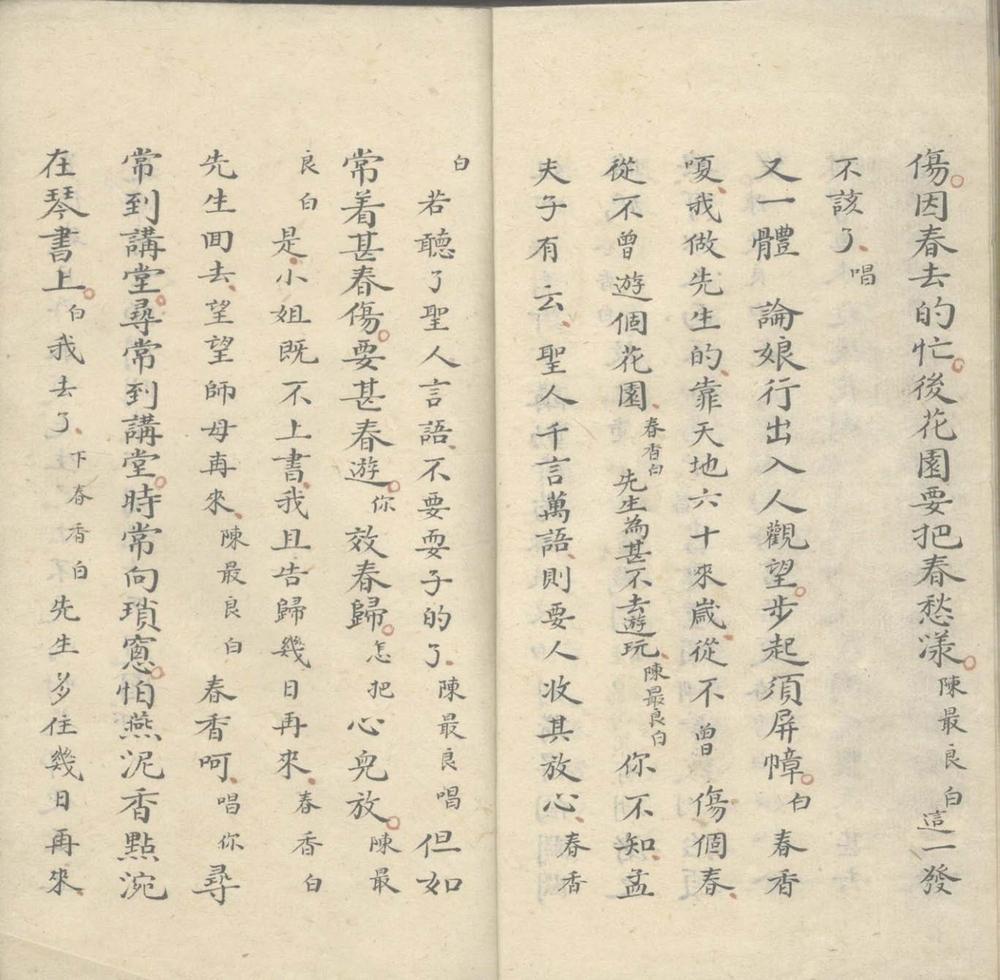 傷因春去的忙後花園要把春愁漾陳最良白這一發
不該了唱
又一體　論娘行出入人觀望步起須屏幛白春香
嗄我做先生的靠天地六十來歲從不曾傷個春
從不曾遊個花園春香白先生為甚不去遊玩陳最良白你不知孟
夫子有云聖人千言萬語則要人收其放心春香
白若聽了聖人言語不要耍子的了陳最良唱但如
常着甚春傷要甚春遊你效春歸怎把心兒放陳最
良白是小姐既不上書我且告歸幾日再來春香白
先生回去望望師母再來陳最良白春香呵唱你尋
常到講堂尋常到講堂時常向瑣窻怕燕泥香點涴
在琴書上白我去了下春香白先生多住幾日再來